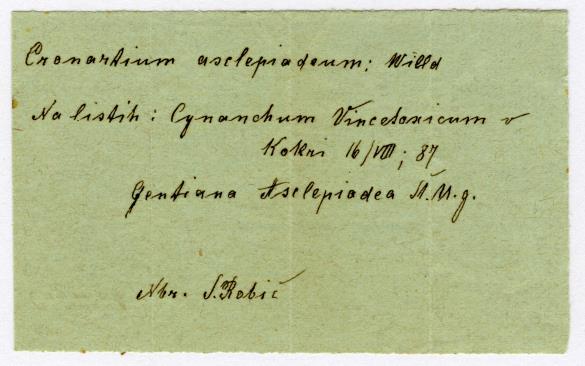 Cronartium asclepiadeum; Willd
Na listih: Cynanchum Vincetoxicum v
Kokri 16/VIII; 87
Gentiana Asclepiadea Š. M. g.
Nbr. S. Robič